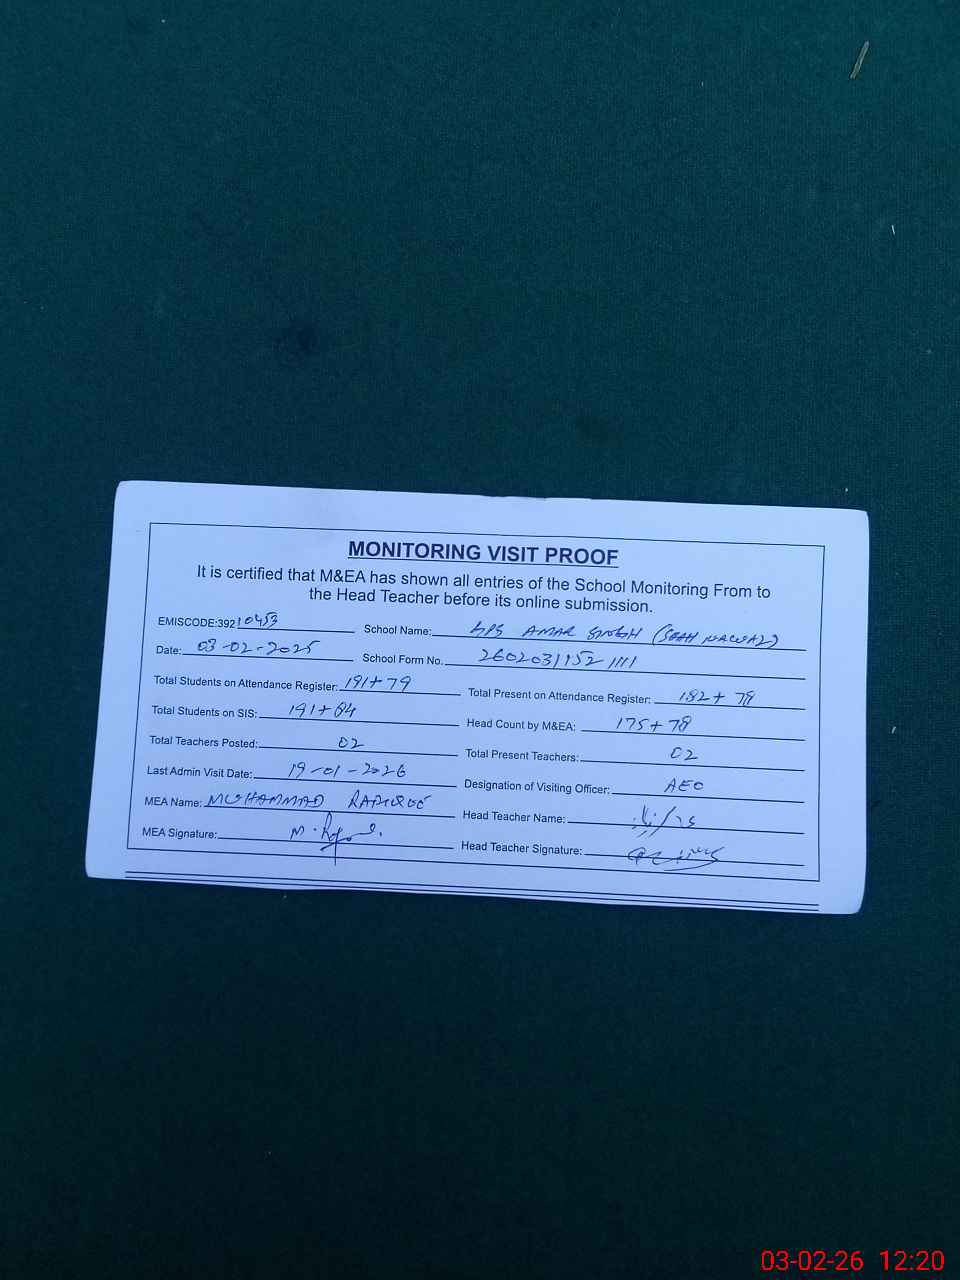 MONITORING VISIT PROOF
It is certified that M&EA has shown all entries of the School Monitoring From to
the Head Teacher before its online submission.
EMISCODE:39210453 School Name: GPS AMAR SINGH (SHAH NAWAZ)
Date: 03-02-2025 School Form No. 2602031152 1111
Total Students on Attendance Register: 191+79 Total Present on Attendance Register: 182+78
Total Students on SIS: 191+84 Head Count by M&EA: 175+78
Total Teachers Posted: 02 Total Present Teachers: 02
Last Admin Visit Date: 19-01-2026 Designation of Visiting Officer: AEO
MEA Name: MUHAMMAD Head Teacher Name:
MEA Signature: Head Teacher Signature:
03-02-26 12:20